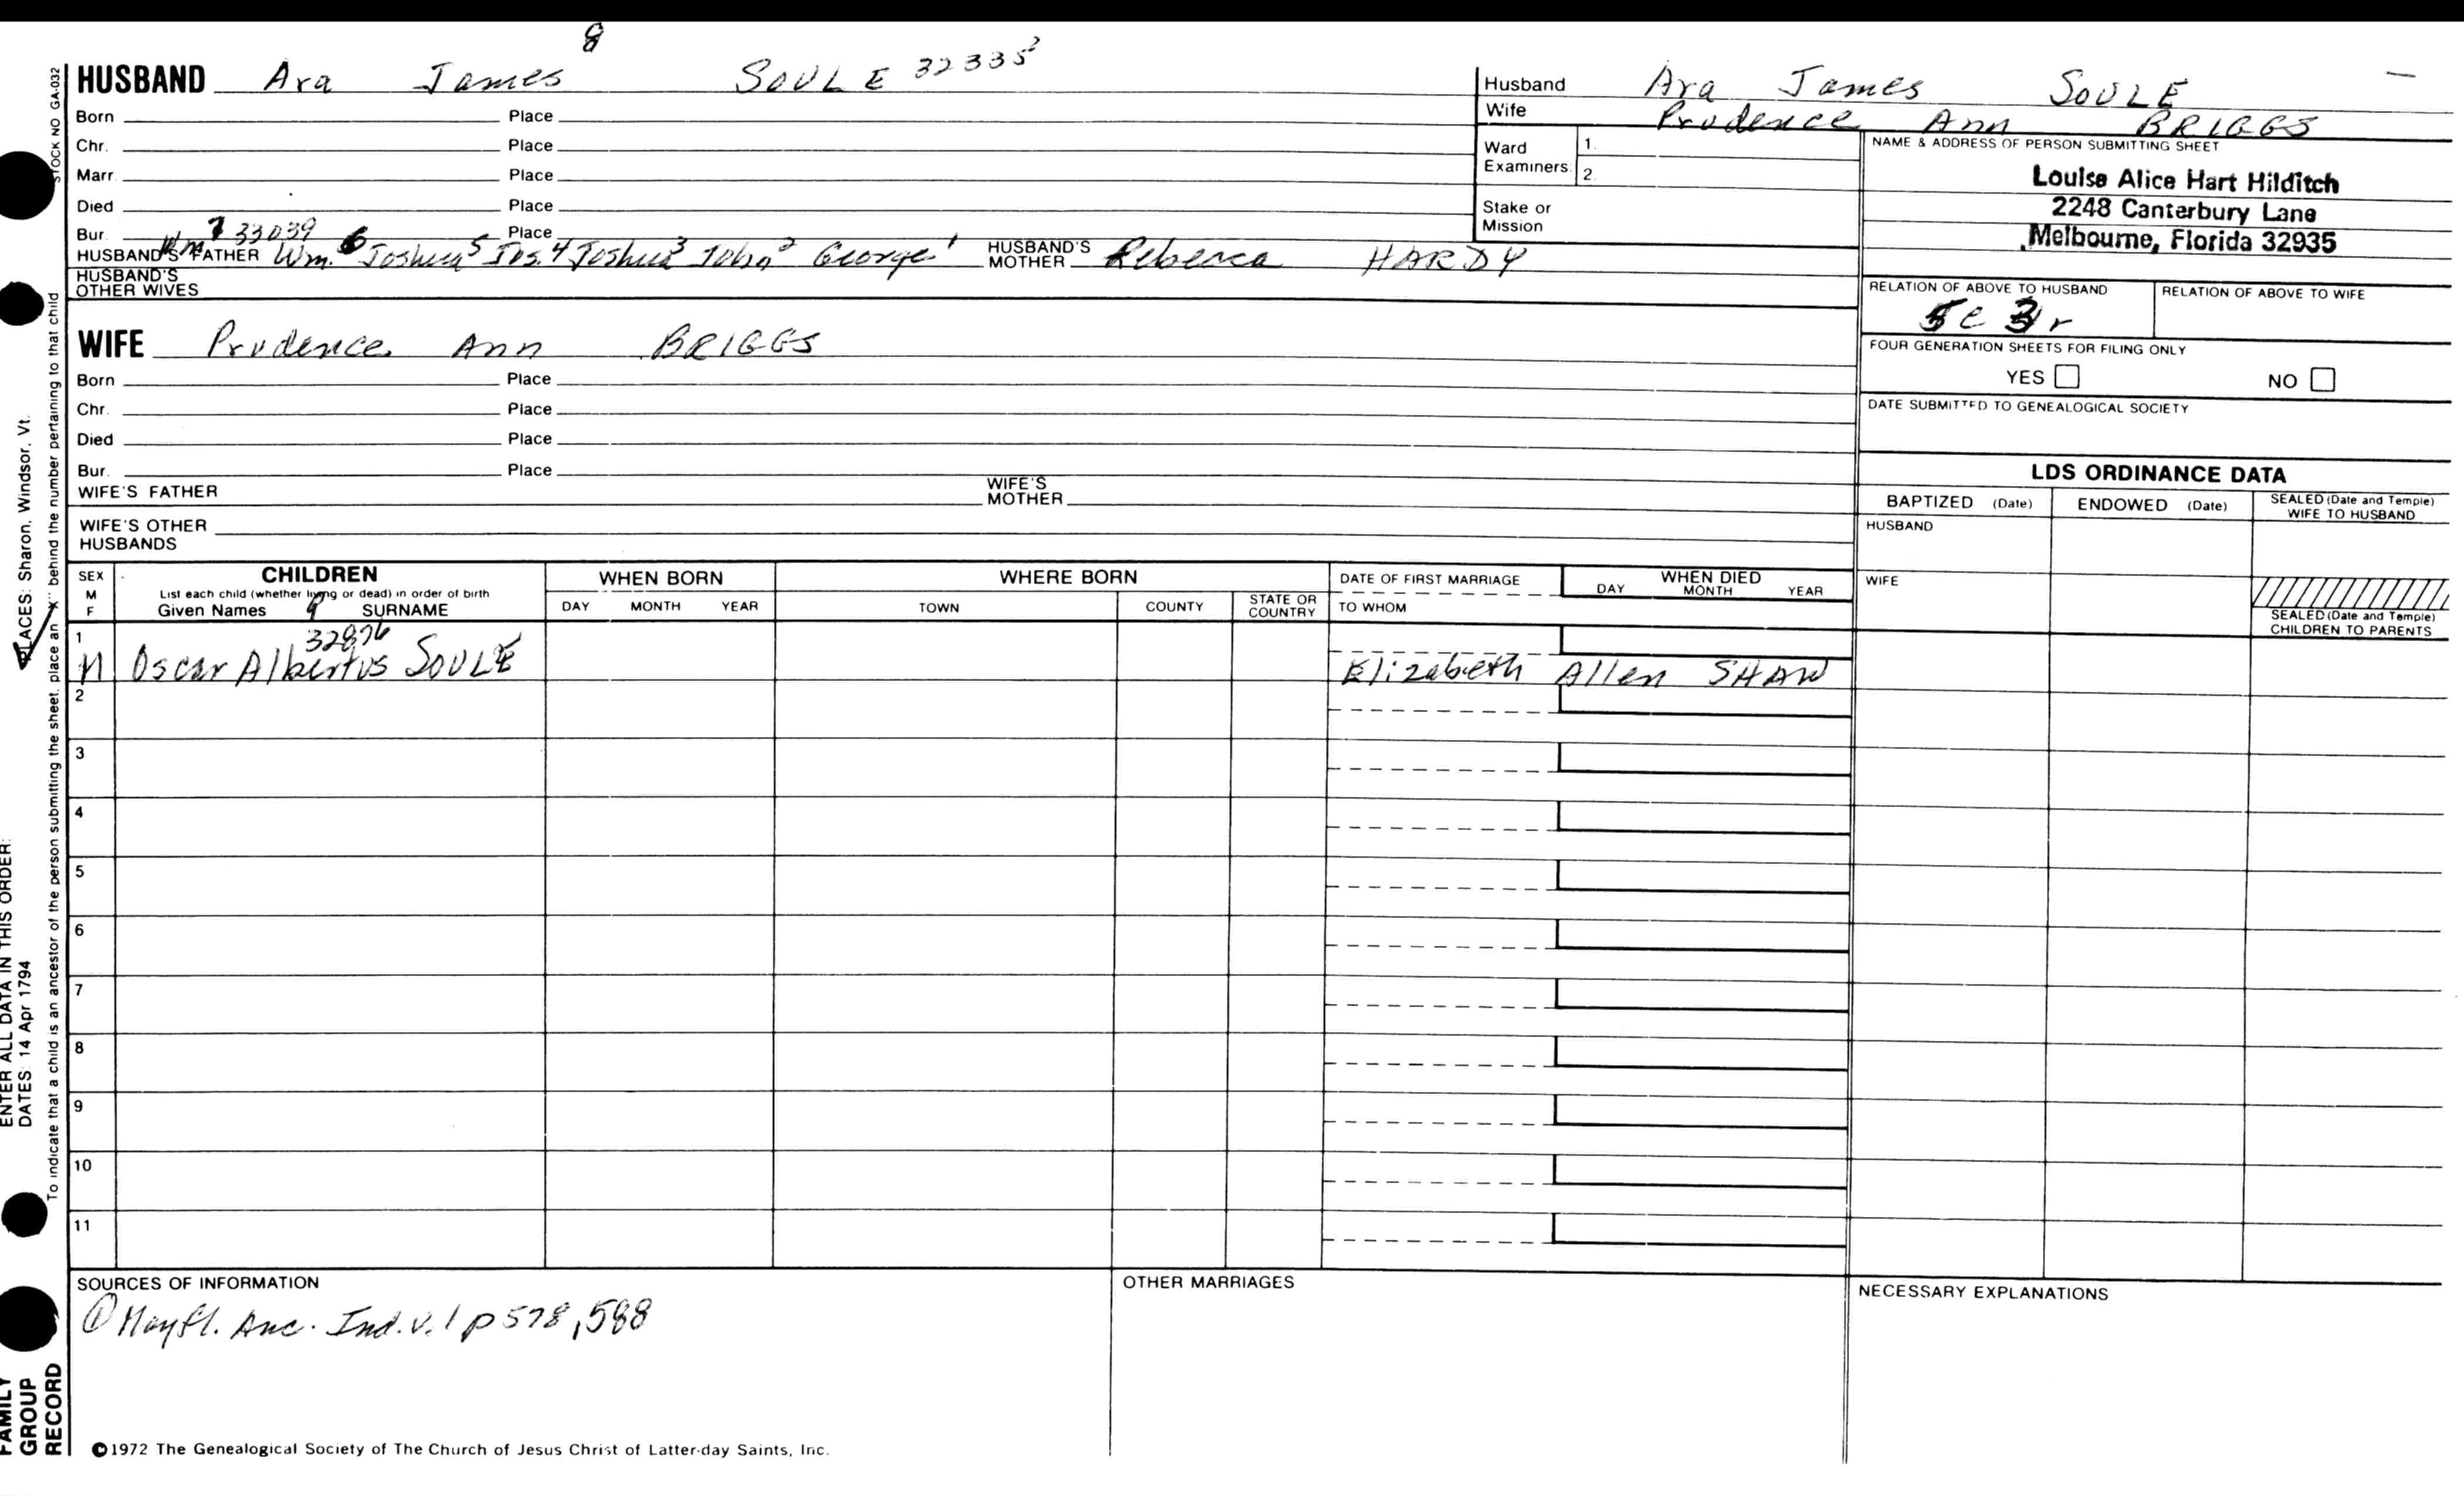 8
HUSBAND Ara James SOULE 32335²
Born Place
Chr. Place
Marr. Place
Died Place
Bur. Place
7 33039
HUSBAND'S FATHER Wm. 6 Joshua 5 Jos. 4 Joshua 3 John 2 George 1 HUSBAND'S MOTHER Rebecca HARDY
HUSBAND'S OTHER WIVES
WIFE Prudence Ann BRIGGS
Born Place
Chr. Place
Died Place
Bur. Place
WIFE'S FATHER WIFE'S MOTHER
WIFE'S OTHER HUSBANDS
Husband Ara James SOULE
Wife Prudence Ann BRIGGS
Ward Examiners 1. 2.
Stake or Mission
NAME & ADDRESS OF PERSON SUBMITTING SHEET
Louise Alice Hart Hilditch
2248 Canterbury Lane
Melbourne, Florida 32935
RELATION OF ABOVE TO HUSBAND RELATION OF ABOVE TO WIFE
5c 3r
FOUR GENERATION SHEETS FOR FILING ONLY
YES NO
DATE SUBMITTED TO GENEALOGICAL SOCIETY
LDS ORDINANCE DATA
BAPTIZED (Date) ENDOWED (Date) SEALED (Date and Temple) WIFE TO HUSBAND
HUSBAND
WIFE
SEALED (Date and Temple) CHILDREN TO PARENTS
SEX M F
CHILDREN
List each child (whether living or dead) in order of birth
Given Names 9 SURNAME
WHEN BORN
DAY MONTH YEAR
WHERE BORN
TOWN COUNTY STATE OR COUNTRY
DATE OF FIRST MARRIAGE
TO WHOM
WHEN DIED
DAY MONTH YEAR
1
32876
M Oscar Albertus SOULE Elizabeth Allen SHAW
2
3
4
5
6
7
8
9
10
11
SOURCES OF INFORMATION
① Mayfl. Anc. Ind. v. 1 p 578, 588
OTHER MARRIAGES
NECESSARY EXPLANATIONS
©1972 The Genealogical Society of The Church of Jesus Christ of Latter-day Saints, Inc.
STOCK NO GA-032
To indicate that a child is an ancestor of the person submitting the sheet, place an "X" behind the number pertaining to that child
PLACES: Sharon, Windsor, Vt.
ENTER ALL DATA IN THIS ORDER:
DATES: 14 Apr 1794
FAMILY
GROUP
RECORD